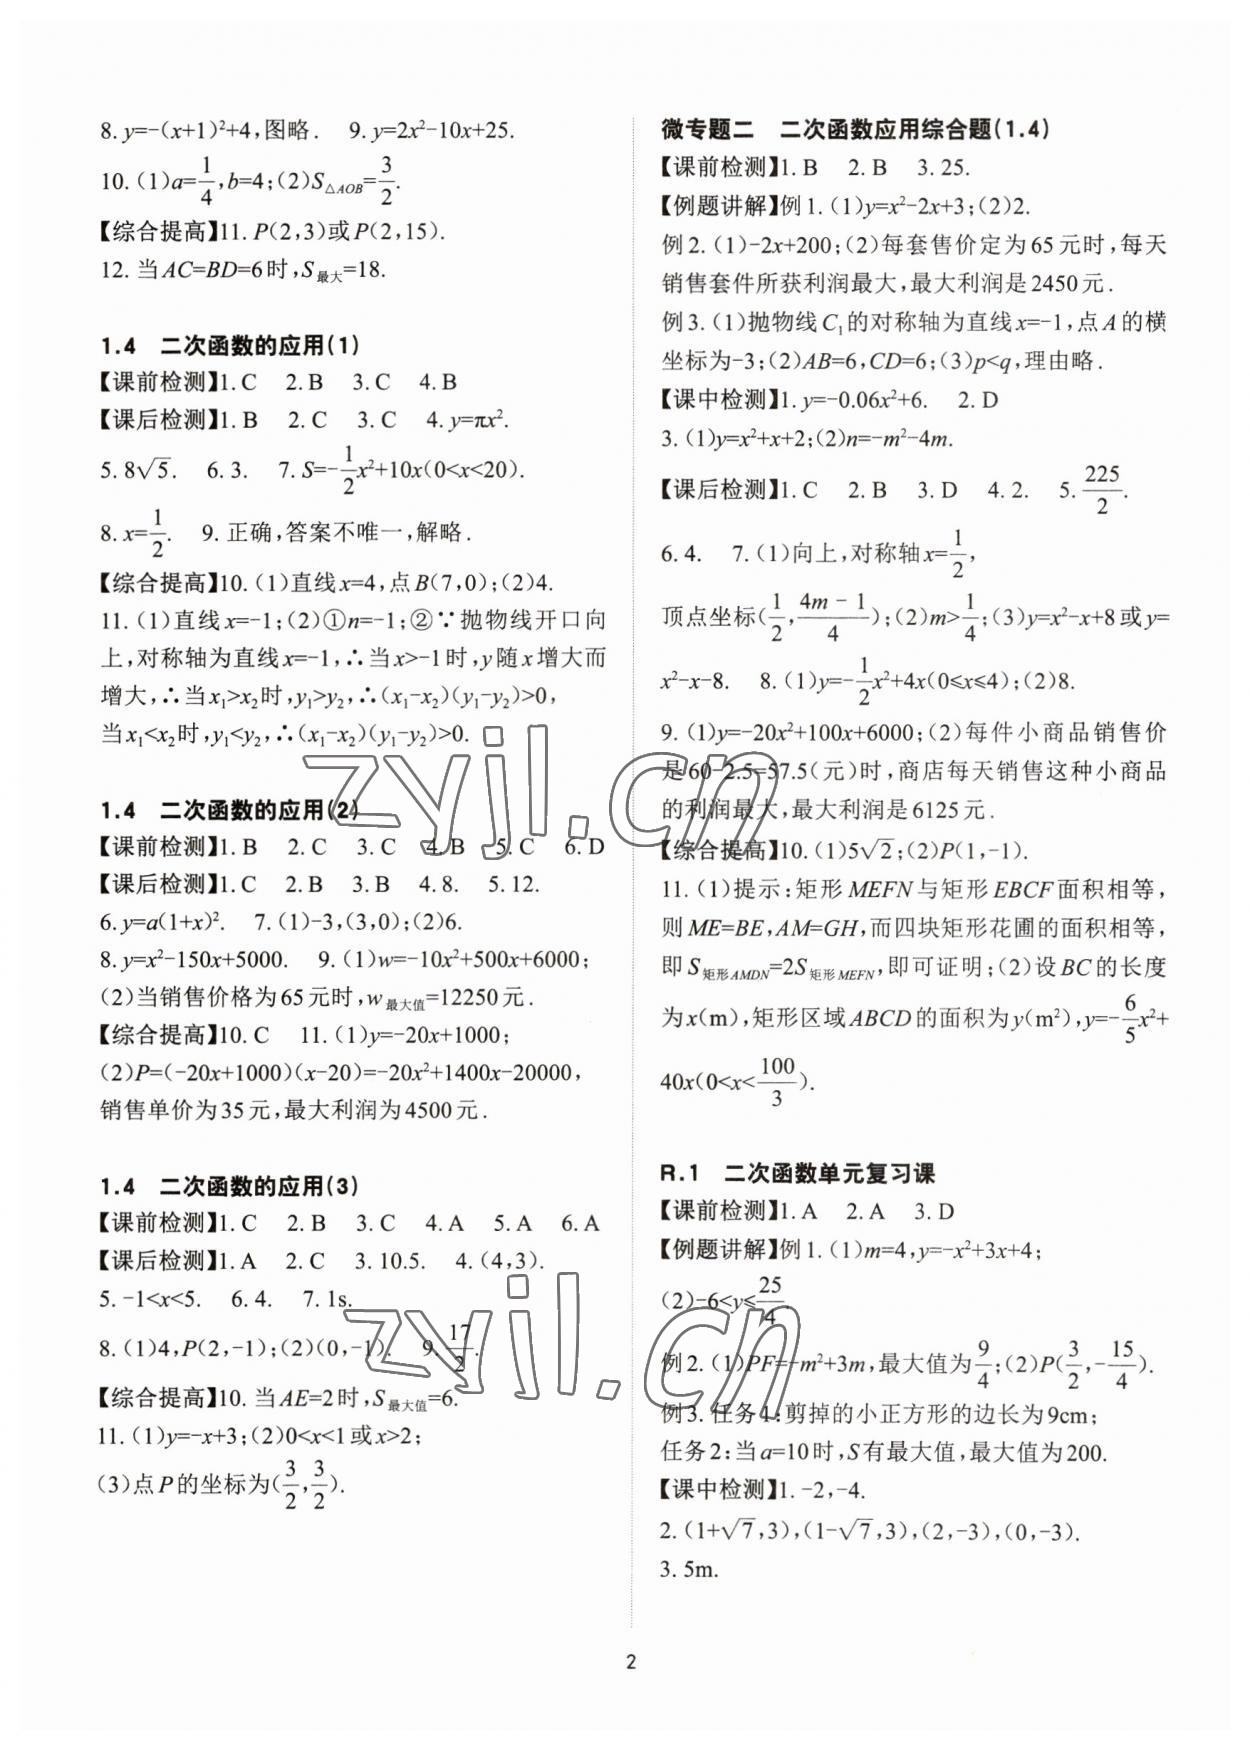 8.y=-(x+1)²+4,图略.  9.y=2x²-10x+25.
10.(1)a=1/4,b=4;(2)S△AOB=3/2.
【综合提高】11.P(2,3)或P(2,15).
12.当AC=BD=6时,S最大=18.
1.4 二次函数的应用(1)
【课前检测】1.C  2.B  3.C  4.B
【课后检测】1.B  2.C  3.C  4.y=πx².
5.8√5.  6.3.  7.S=-1/2x²+10x(0<x<20).
8.x=1/2.  9.正确,答案不唯一,解略.
【综合提高】10.(1)直线x=4,点B(7,0);(2)4.
11.(1)直线x=-1;(2)①n=-1;②∵抛物线开口向
上,对称轴为直线x=-1,∴当x>-1时,y随x增大而
增大,∴当x₁>x₂时,y₁>y₂,∴(x₁-x₂)(y₁-y₂)>0,
当x₁<x₂时,y₁<y₂,∴(x₁-x₂)(y₁-y₂)>0.
1.4 二次函数的应用(2)
【课前检测】1.B  2.C  3.C  4.B  5.C  6.D
【课后检测】1.C  2.B  3.B  4.8.  5.12.
6.y=a(1+x)².  7.(1)-3,(3,0);(2)6.
8.y=x²-150x+5000.  9.(1)w=-10x²+500x+6000;
(2)当销售价格为65元时,w最大值=12250元.
【综合提高】10.C  11.(1)y=-20x+1000;
(2)P=(-20x+1000)(x-20)=-20x²+1400x-20000,
销售单价为35元,最大利润为4500元.
1.4 二次函数的应用(3)
【课前检测】1.C  2.B  3.C  4.A  5.A  6.A
【课后检测】1.A  2.C  3.10.5.  4.(4,3).
5.-1<x<5.  6.4.  7.1s.
8.(1)4,P(2,-1);(2)(0,-1).  9.17/2.
【综合提高】10.当AE=2时,S最大值=6.
11.(1)y=-x+3;(2)0<x<1或x>2;
(3)点P的坐标为(3/2,3/2).
微专题二 二次函数应用综合题(1.4)
【课前检测】1.B  2.B  3.25.
【例题讲解】例1.(1)y=x²-2x+3;(2)2.
例2.(1)-2x+200;(2)每套售价定为65元时,每天
销售套件所获利润最大,最大利润是2450元.
例3.(1)抛物线C₁的对称轴为直线x=-1,点A的横
坐标为-3;(2)AB=6,CD=6;(3)p<q,理由略.
【课中检测】1.y=-0.06x²+6.  2.D
3.(1)y=x²+x+2;(2)n=-m²-4m.
【课后检测】1.C  2.B  3.D  4.2.  5.225/2.
6.4.  7.(1)向上,对称轴x=1/2,
顶点坐标(1/2,4m-1/4);(2)m>1/4;(3)y=x²-x+8或y=
x²-x-8.  8.(1)y=-1/2x²+4x(0≤x≤4);(2)8.
9.(1)y=-20x²+100x+6000;(2)每件小商品销售价
是60-2.5=57.5(元)时,商店每天销售这种小商品
的利润最大,最大利润是6125元.
【综合提高】10.(1)5√2;(2)P(1,-1).
11.(1)提示:矩形MEFN与矩形EBCF面积相等,
则ME=BE,AM=GH,而四块矩形花圃的面积相等,
即S矩形AMDN=2S矩形MEFN,即可证明;(2)设BC的长度
为x(m),矩形区域ABCD的面积为y(m²),y=-6/5x²+
40x(0<x<100/3).
R.1 二次函数单元复习课
【课前检测】1.A  2.A  3.D
【例题讲解】例1.(1)m=4,y=-x²+3x+4;
(2)-6<y≤25/4.
例2.(1)PF=-m²+3m,最大值为9/4;(2)P(3/2,-15/4).
例3.任务1:剪掉的小正方形的边长为9cm;
任务2:当a=10时,S有最大值,最大值为200.
【课中检测】1.-2,-4.
2.(1+√7,3),(1-√7,3),(2,-3),(0,-3).
3.5m.
2
zyjl.cn
zyjl.cn